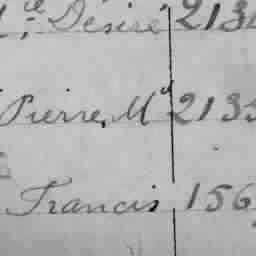 Désiré 213
Pierre, Md 2133
Francis 156